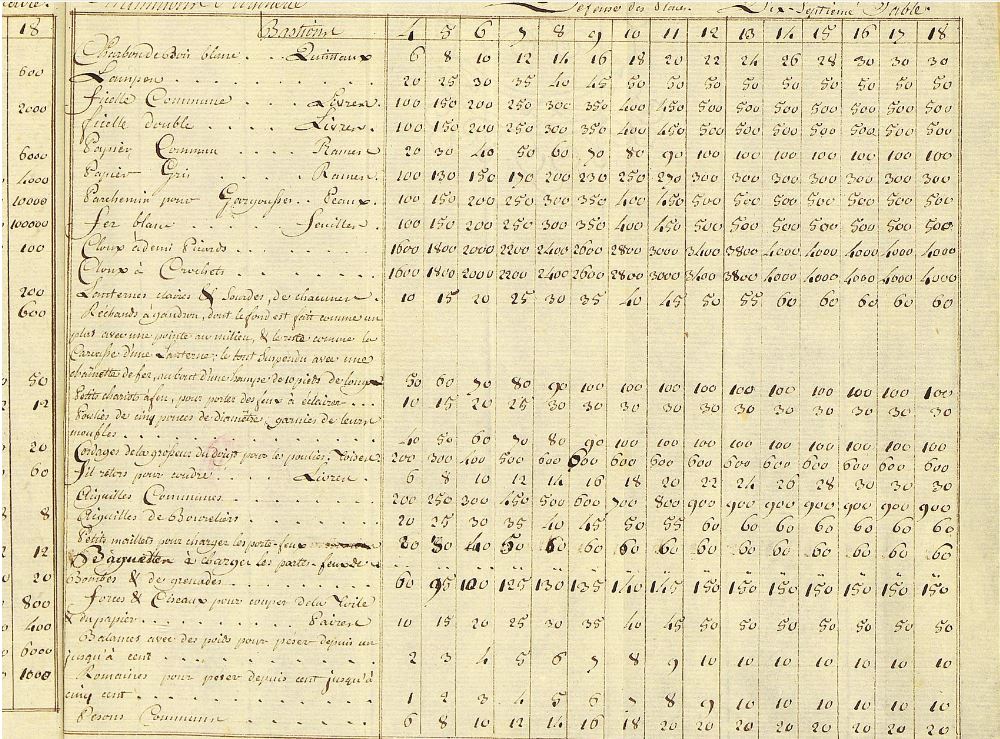 Défense des Places. Dix-Septième Table.
18 Bastions 4 5 6 7 8 9 10 11 12 13 14 15 16 17 18
Charbon de Bois blanc . . Quintaux 6 8 10 12 14 16 18 20 22 24 26 28 30 30 30
600 Lampes . . . 20 25 30 35 40 45 50 50 50 50 50 50 50 50 50
2000 ficelle Commune . . . Livres . 100 150 200 250 300 350 400 450 500 500 500 500 500 500 500
ficelle double . . . . Livres . 100 150 200 250 300 350 400 450 500 500 500 500 500 500 500
6000 Papier Commun . . . Rames 20 30 40 50 60 70 80 90 100 100 100 100 100 100 100
4000 Papier Gris . . . Rames . 100 130 150 170 200 230 250 270 300 300 300 300 300 300 300
10000 Parchemin pour Gargousses . . Peaux . 100 150 200 250 300 350 400 450 500 500 500 500 500 500 500
100000 fer blanc . . . feuilles . 100 150 200 250 300 350 400 450 500 500 500 500 500 500 500
100 Cloux a demi Picards . . . . 1600 1800 2000 2200 2400 2600 2800 3000 3400 3800 4000 4000 4000 4000 4000
Cloux à Crochets . . . . . 1600 1800 2000 2200 2400 2600 2800 3000 3400 3800 4000 4000 4000 4000 4000
200 Lanternes claires & Sourdes, de chacunes . 10 15 20 25 30 35 40 45 50 55 60 60 60 60 60
600 Réchauds a gaudron, dont le fond est fait comme un
plat avec une pointe au milieu, & le reste comme la
Carcasse d'une Lanterne; le tout Suspendu avec une
50 chaînette de fer, au bout d'une hampe de 10 pieds de long 50 60 70 80 90 100 100 100 100 100 100 100 100 100 100
12 Petits chariots a feu, pour porter des feux à éclairer . . . 10 15 20 25 30 30 30 30 30 30 30 30 30 30 30
Poulies de cinq pouces de Diamètre, garnies de leurs
moufles . . . . . . . 40 50 60 70 80 90 100 100 100 100 100 100 100 100 100
20 Cordages de la grosseur du doigt pour les poulies. Toises 200 300 400 500 600 600 600 600 600 600 600 600 600 600 600
60 fil retors pour coudre . . . Livres . 6 8 10 12 14 16 18 20 22 24 26 28 30 30 30
Aiguilles Communes . . . . 200 250 300 450 500 600 700 800 900 900 900 900 900 900 900
8 Aiguilles de Bourreliers . . . . 20 25 30 35 40 45 50 55 60 60 60 60 60 60 60
Petits maillets pour charger les porte-feux 20 30 40 50 60 60 60 60 60 60 60 60 60 60 60
12 Baguettes à charger les portes-feux de
20 Bombes & de grenades . . . . 60 95 100 125 130 135 140 145 150 150 150 150 150 150 150
800 forces & Ciseaux pour couper de la Toile
400 & du papier . . . . Paires 10 15 20 25 30 35 40 45 50 50 50 50 50 50 50
Balances avec des poids pour peser depuis un
6000 jusqu'à cent . . . . 2 3 4 5 6 7 8 9 10 10 10 10 10 10 10
1000 Romaines pour peser depuis cent jusqu'à
cinq cent . . . . 1 2 3 4 5 6 7 8 9 10 10 10 10 10 10
Pesons Communs . . . . 6 8 10 12 14 16 18 20 20 20 20 20 20 20 20